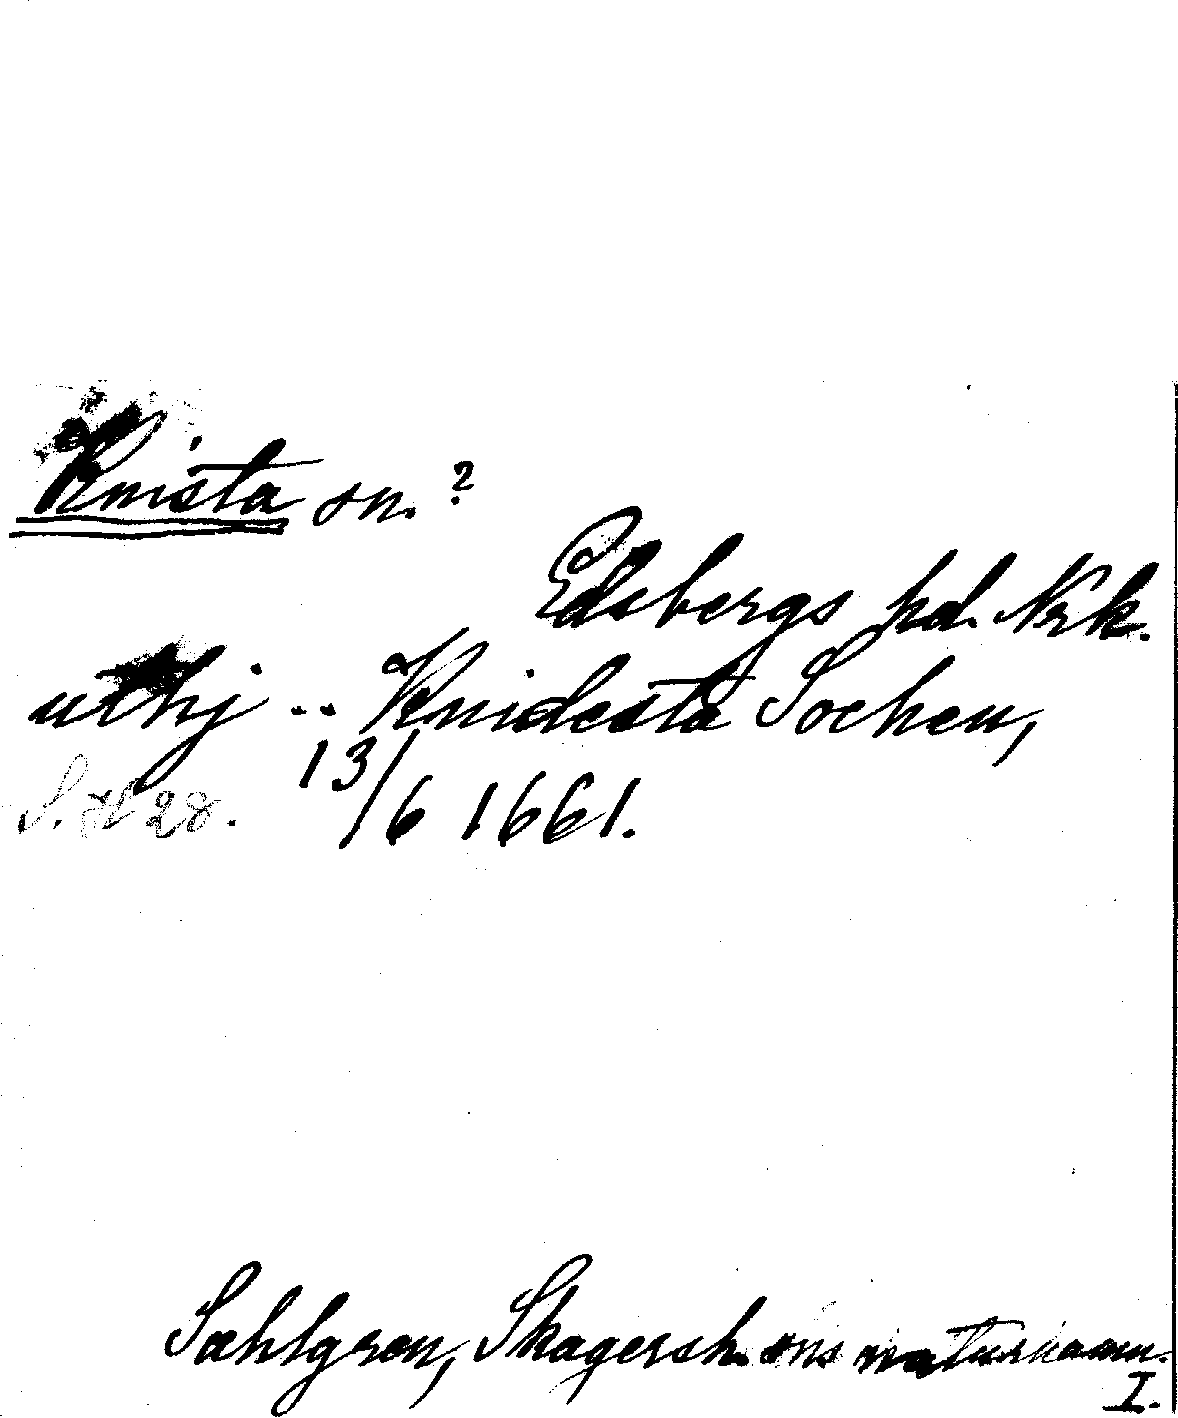 Knista sn.?
Edsbergs hd. Nrk.
uthj .. Knidesta Sochen,
13/6 1661.
S. 28.
Sahlgren, Skagersh. sns naturnamn.
I.